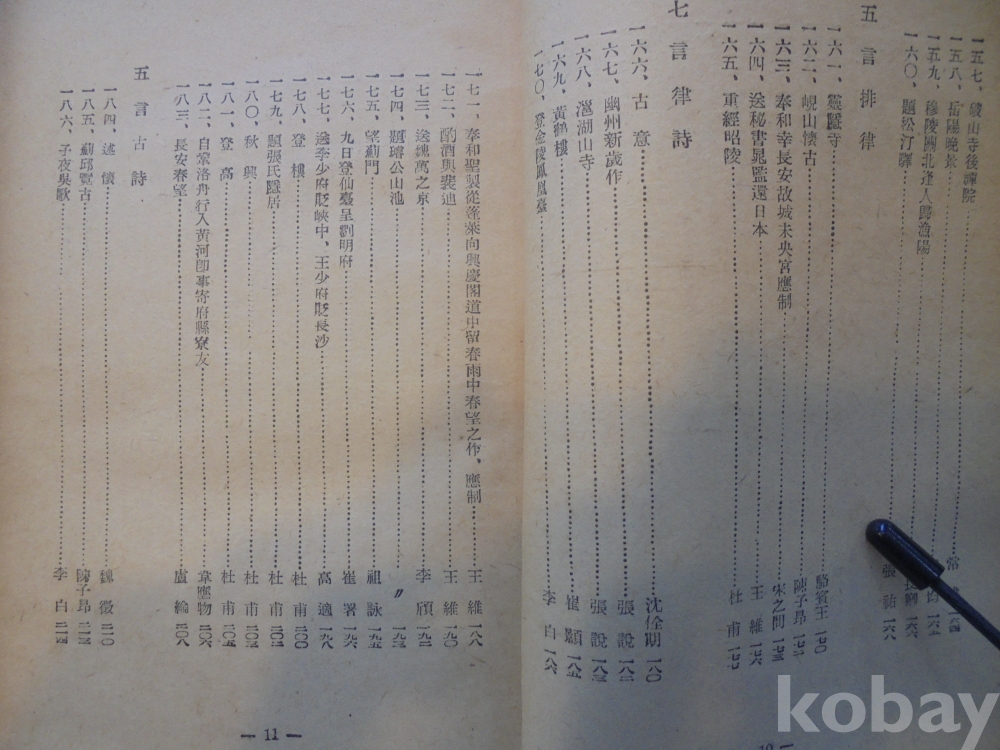 一五七、破山寺後禪院
一五八、岳陽晩景
一五九、穆陵關北逢人歸漁陽
一六〇、題松汀驛 張祜 一六八
五言排律
一六一、靈隱寺 駱賓王 一七〇
一六二、峴山懷古 陳子昂 一七二
一六三、奉和幸長安故城未央宮應制 宋之問 一七三
一六四、送秘書晁監還日本 王維 一七六
一六五、重經昭陵 杜甫 一七七
七言律詩
一六六、古意 沈佺期 一八〇
一六七、幽州新歲作 張說 一八二
一六八、㴩湖山寺 張說 一八三
一六九、黃鶴樓 崔顥 一八五
一七〇、登金陵鳳凰臺 李白 一八六
一七一、奉和聖製從蓬萊向興慶閣道中留春雨中春望之作、應制 王維 一八八
一七二、酌酒與裴迪 王維 一九〇
一七三、送魏萬之京 李頎 一九二
一七四、題璿公山池 〃 一九三
一七五、望薊門 祖詠 一九五
一七六、九日登仙臺呈劉明府 崔署 一九六
一七七、送李少府貶峽中、王少府貶長沙 高適 一九八
一七八、登樓 杜甫 二〇〇
一七九、題張氏隱居 杜甫 二〇二
一八〇、秋興 杜甫 二〇三
一八一、登高 杜甫 二〇五
一八二、自鞏洛舟行入黃河卽事寄府縣寮友 韋應物 二〇六
一八三、長安春望 盧綸 二〇八
五言古詩
一八四、述懷 魏徵 二一〇
一八五、薊邱覽古 陳子昂 二一三
一八六、子夜吳歌 李白 二一四
— 11 —
kobay